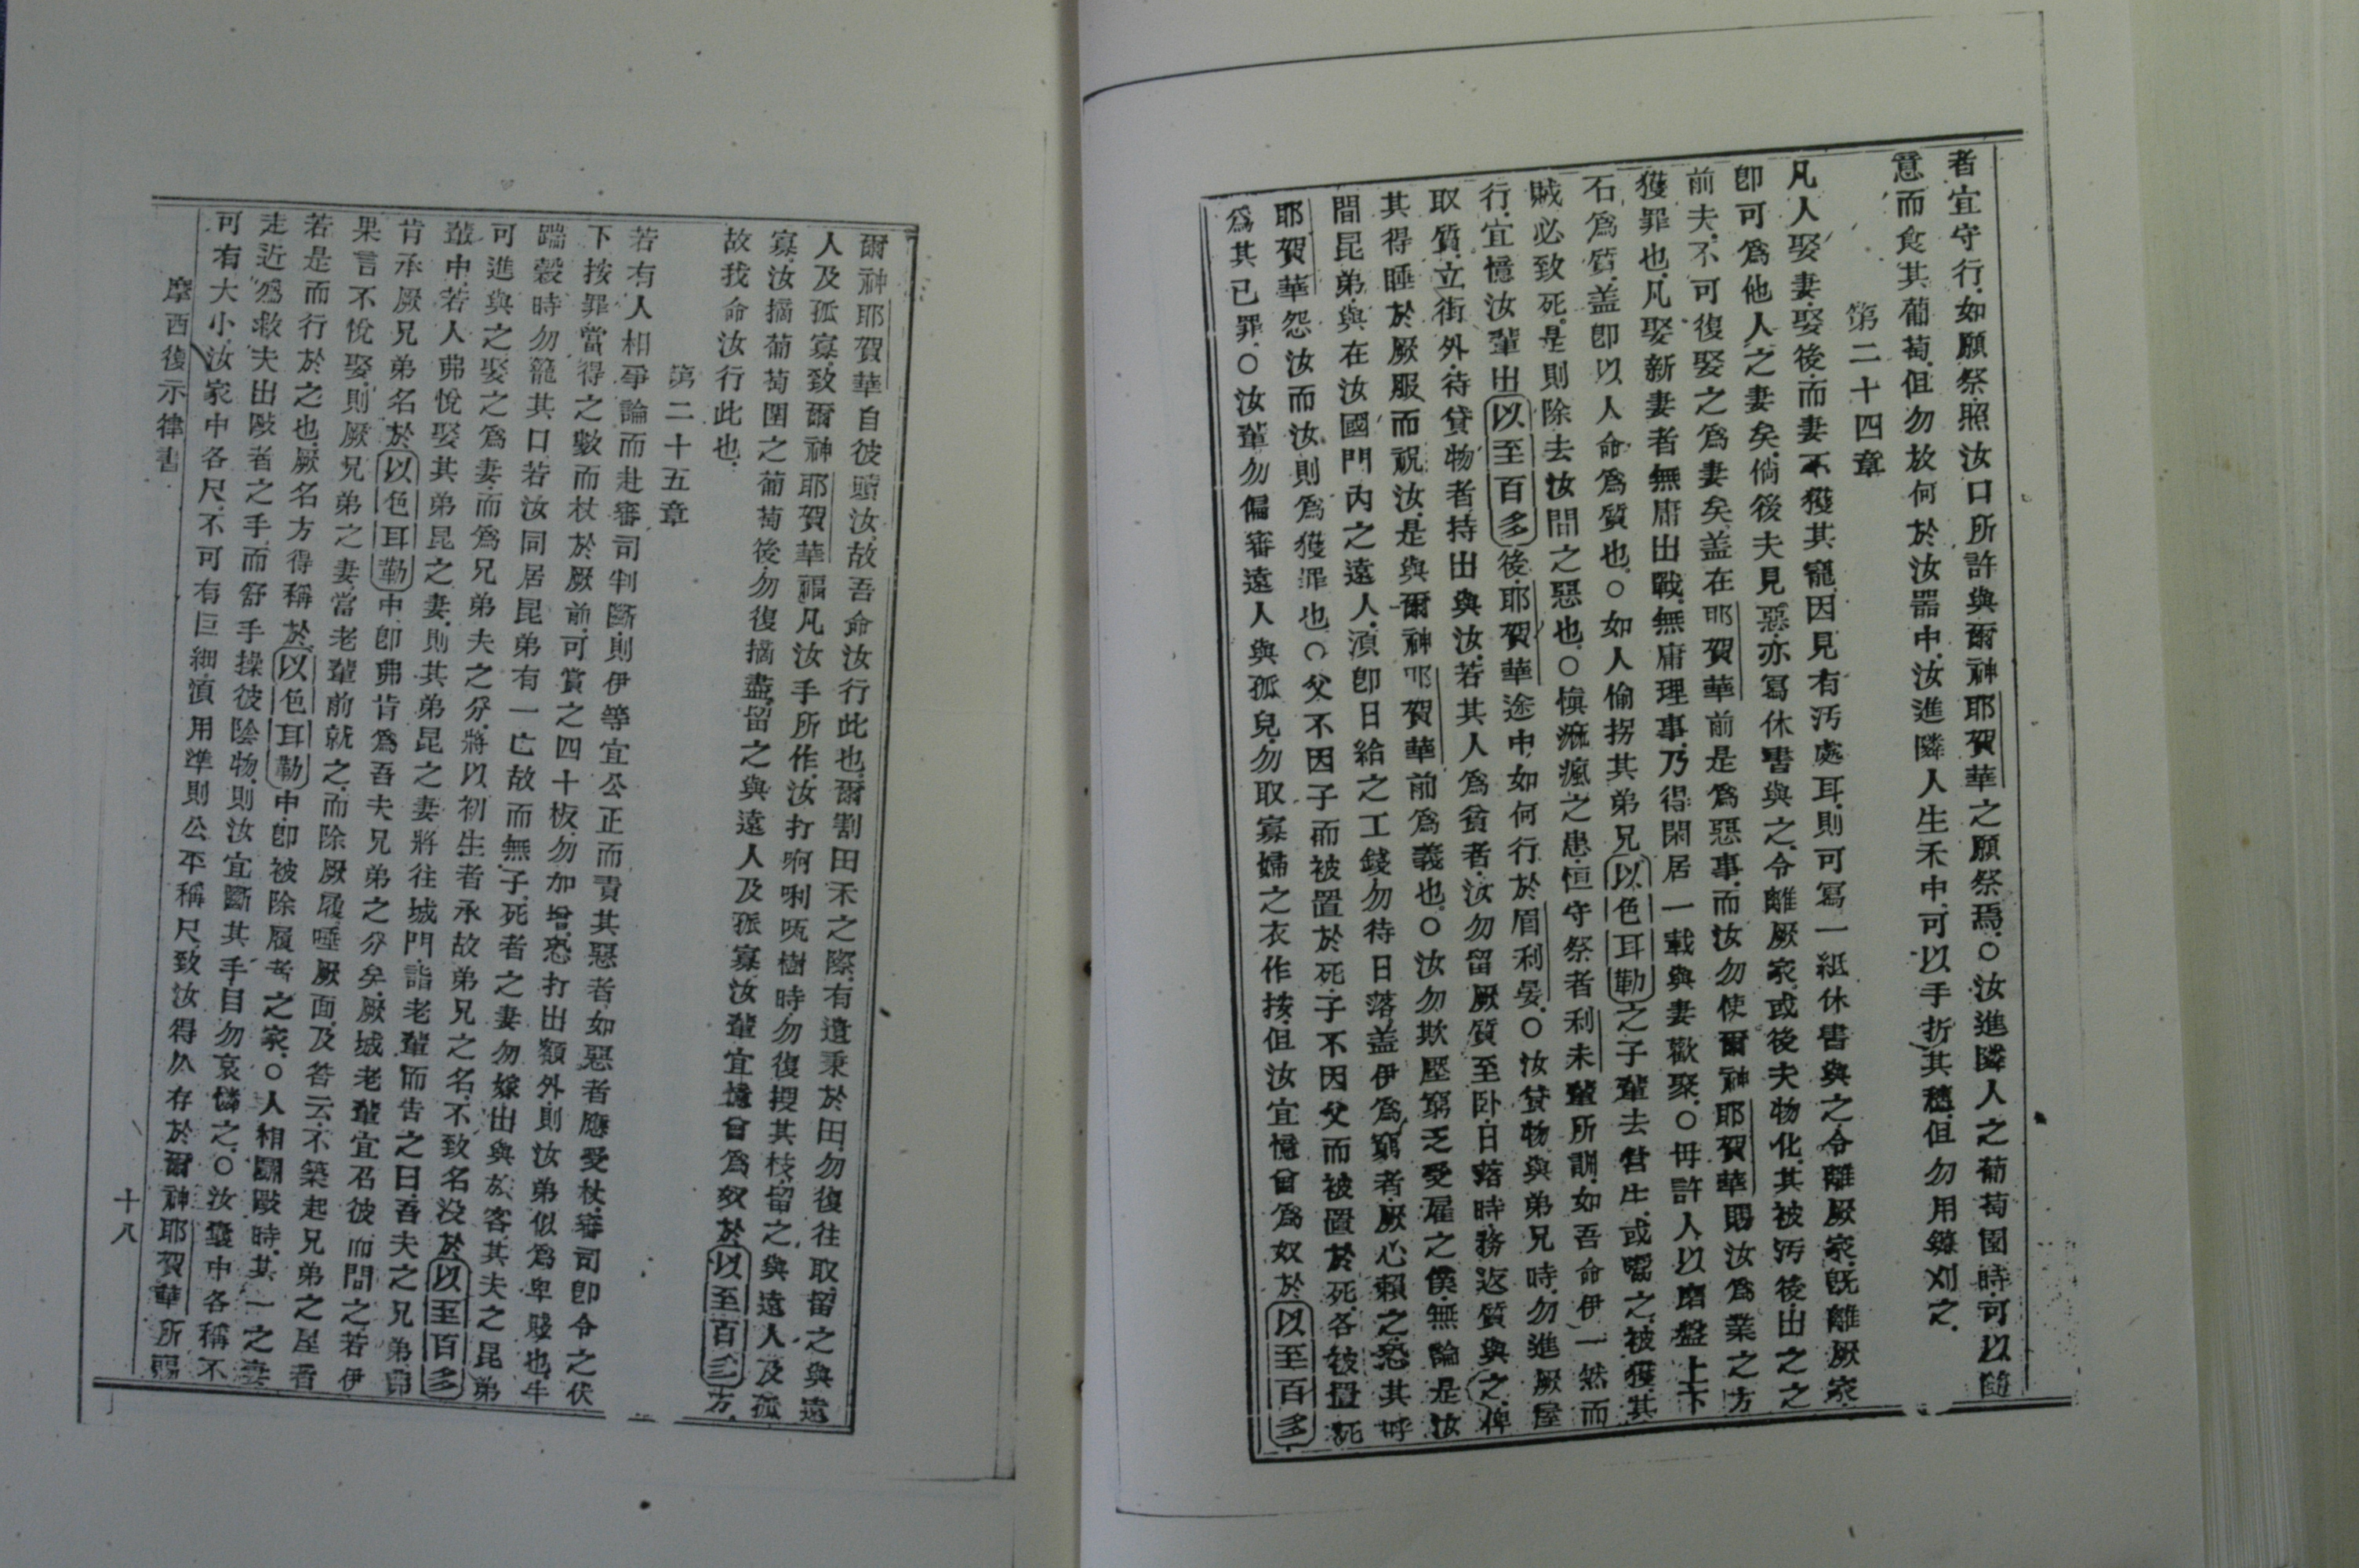 者宜守行.如願祭.照汝口所許與爾神耶賀華之願祭焉.○汝進隣人之葡萄園時.可以隨
意而食其葡萄.但勿放何於汝器中.汝進隣人生禾中.可以手折其穗.但勿用鐮刈之.
第二十四章
凡人娶妻.娶後.而妻不獲其寵.因見有汚處耳.則可寫一紙休書與之.令離厥家.旣離厥家.
卽可爲他人之妻矣.倘後夫見惡.亦寫休書與之.令離厥家.或後夫物化.其被汚後.出之之
前夫.不可復娶之爲妻矣.盖在耶賀華前是爲惡事.而汝勿使爾神耶賀華賜汝爲業之方
獲罪也.凡娶新妻者.無庸出戰.無庸理事.乃得閑居一載.與妻歡聚.○毋許人以磨盤上下
石爲質.盖卽以人命爲質也.○如人偷拐其弟兄以色耳勒之子輩去營生.或賣之.被獲.其
賊必致死.是則除去汝間之惡也.○愼痲瘋之患.恒守祭者利未輩所訓.如吾命伊一然而
行.宜憶汝輩出以至百多後.耶賀華途中如何行於眉利晏.○汝貸物與弟兄時.勿進厥屋
取質.立街外.待貸物者.持出與汝.若其人爲貧者.汝勿留厥質至卧.日落時.務返質與之.俾
其得睡於厥服而祝汝.是與爾神耶賀華前爲義也.○汝勿欺壓窮乏受雇之僕.無論是汝
間昆弟.與在汝國門內之遠人.須卽日給之工錢.勿待日落.盖伊爲窮者.厥心賴之.恐其呼
耶賀華怨汝.而汝則爲獲罪也.○父不因子而被置於死.子不因父而被置於死.各被置死
爲其已罪.○汝輩勿偏審遠人與孤兒.勿取寡婦之衣作按.但汝宜憶曾爲奴於以至百多.
爾神耶賀華自彼贖汝.故吾命汝行此也.爾割田禾之際.有遺秉於田.勿復往取.留之與遠
人及孤寡.致爾神耶賀華福凡汝手所作.汝打啊唎㕽樹時.勿復搜其枝.留之與遠人及孤
寡.汝摘葡萄園之葡萄後.勿復摘盡.留之與遠人及孤寡.汝輩宜憶曾爲奴於以至百多方.
故我命汝行此也.
第二十五章
若有人相爭論而赴審司判斷.則伊等宜公正而責其惡者.如惡者應受杖.審司卽令之伏
下.按罪當得之數而杖於厥前.可賞之四十板.勿加增.恐打出額外.則汝弟似爲卑賤也.牛
踹穀時.勿籠其口.若汝同居昆弟.有一亡故而無子.死者之妻勿嫁出與族客.其夫之昆弟
可進與之.娶之爲妻.而爲兄弟夫之分.將以初生者承故弟兄之名.不致名沒於以至百多
輩中.若人弗悅娶其弟昆之妻.則其弟昆之妻將往城門.詣老輩而告之曰.吾夫之兄弟.弗
肯承厥兄弟名於以色耳勒中.卽弗肯爲吾夫兄弟之分矣.厥城老輩宜召彼而問之.若伊
果言不悅娶.則厥兄弟之妻.當老輩前就之.而除厥履.唾厥面.及答云.不築起兄弟之屋者
若是而行於之也.厥名方得稱於以色耳勒中.卽被除履者之家.○人相鬬毆時.其一之妻
走近爲救夫出毆者之手.而舒手操彼陰物.則汝宜斷其手.目勿哀憐之.○汝囊中各稱不
可有大小.汝家中各尺.不可有巨細.須用準則公平稱尺.致汝得久存於爾神耶賀華所賜
摩西復示律書
十八